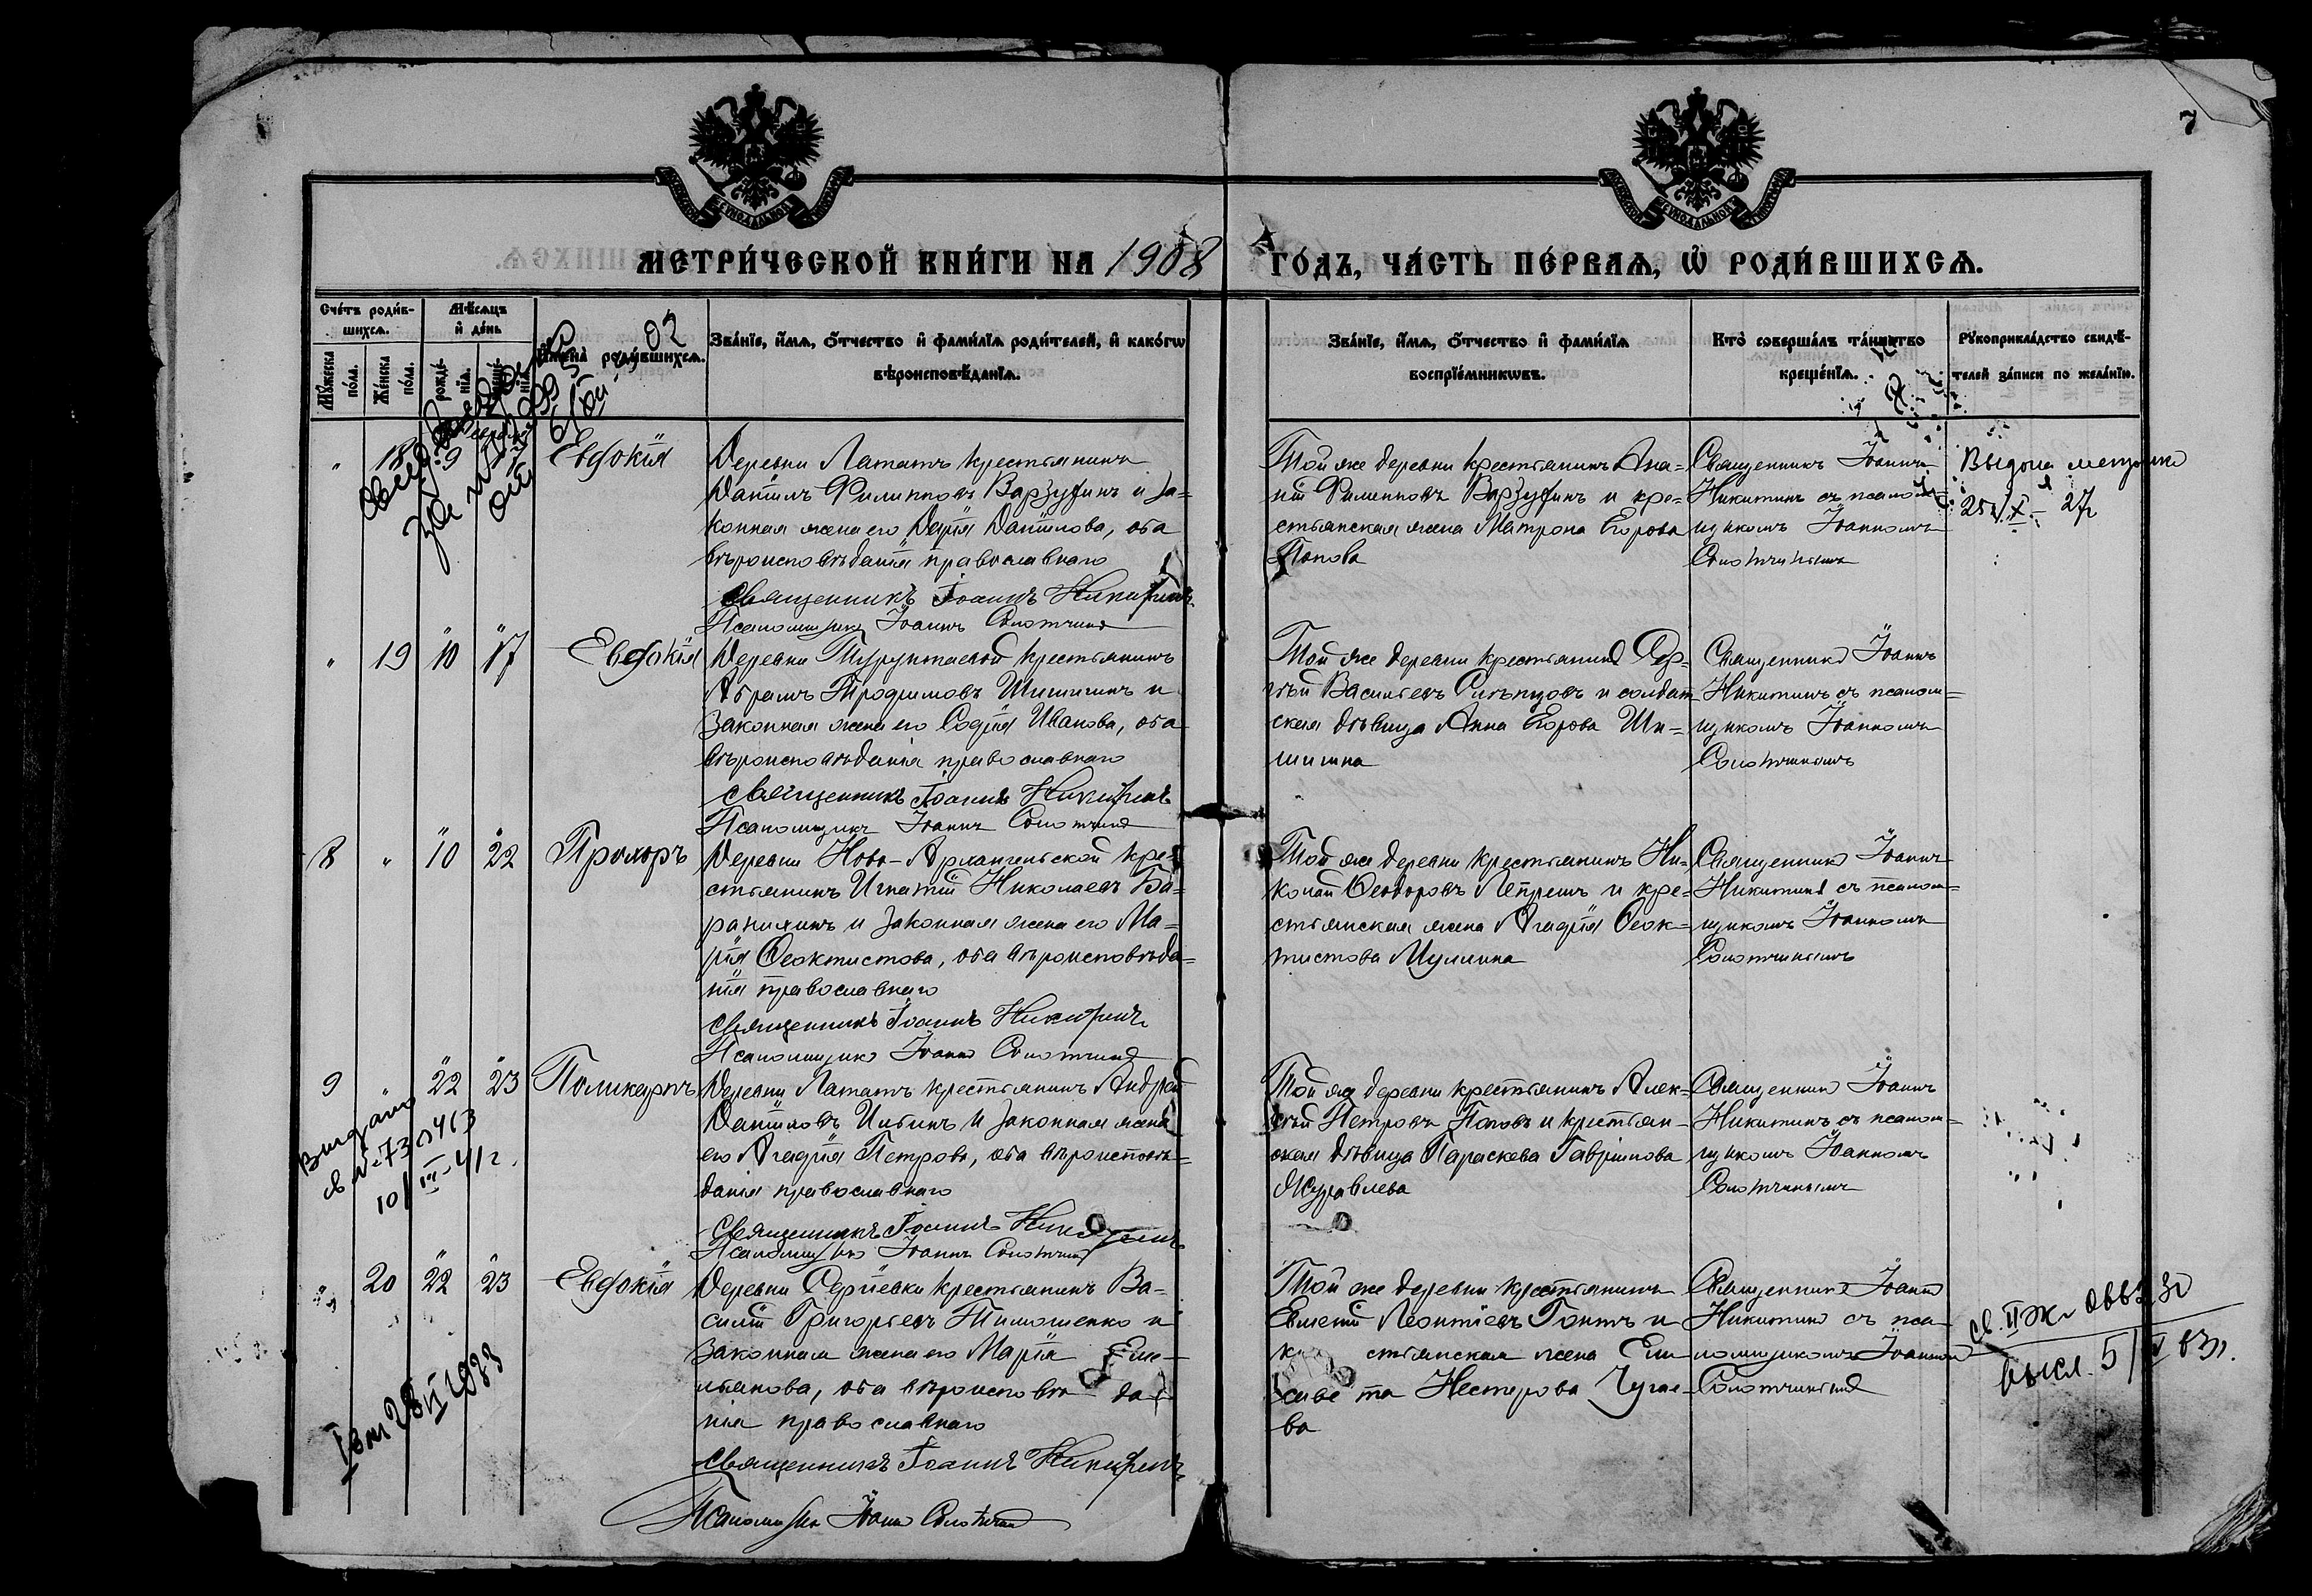 7
МЕТРИ́ЧЕСКОЙ КНИ́ГИ НА 1908 ГО́ДЪ, ЧА́СТЬ ПЕ́РВАЯ, Ѡ҆ РОДИ́ВШИХСѦ.
Сче́тъ роди́в-
шихсѧ.
Мѣ́сѧцъ
и҆ де́нь
И҆мена̀ роди́вшихсѧ.
Зва́нїе, и҆́мѧ, ѻ҆́тчество и҆ фами́лїѧ роди́телей, и҆ како́гѡ
вѣроисповѣ́данїѧ.
Зва́нїе, и҆́мѧ, ѻ҆́тчество и҆ фами́лїѧ
воспрїе́мникѡвъ.
Кто̀ соверша́лъ та́инство
креще́нїѧ.
Рꙋкоприкла́дство свидѣ́-
телей за́писи по жела́нїю.
Мꙋ́жеска по́ла.
Же́нска по́ла.
рожде́нїѧ.
18
Евдокія
Деревни Лататъ крестьянинъ
Даніилъ Филипповъ Варзугинъ и за-
конная жена его Дарія Даніилова, оба
вѣроисповѣданія православнаго
Священникъ Іоаннъ Никитинъ
Псаломщикъ Іоаннъ Солотчинъ
Той же деревни крестьянинъ Ана-
ній Филипповъ Варзугинъ и кре-
стьянская жена Матрона Егорова
Попова
Священникъ Іоаннъ
Никитинъ съ псалом-
щикомъ Іоанномъ
Солотчинымъ
27г
" 19 10 17 Евдокія
Деревни Турунтаевой крестьянинъ
Абрамъ Трофимовъ Шишигинъ и
законная жена его Софія Иванова, оба
вѣроисповѣданія православнаго
Священникъ Іоаннъ Никитинъ
Псаломщикъ Іоаннъ Солотчинъ
Той же деревни крестьянинъ Сер-
гѣй Васильевъ Слѣпцовъ и солдат
ская дѣвица Анна Егорова Ши-
Священникъ Іоаннъ
Никитинъ съ псалом=
щикомъ Іоанномъ
Солотчинымъ
8 " 10 22 Прохоръ
Деревни Ново-Архангельской кре-
стьянинъ Игнатій Николаевъ Ба-
ранихинъ и законная жена его Ма=
рія Ѳеоктистова, оба вѣроисповѣда=
нія православнаго
Священникъ Іоаннъ Никитинъ
Псаломщикъ Іоаннъ Солотчинъ
Той же деревни крестьянинъ Ни-
колай Ѳеодоровъ и кре-
стьянская жена Агафія Ѳеок-
тистова
Священникъ Іоаннъ
Никитинъ съ псалом=
щикомъ Іоанномъ
Солотчинымъ
9 " 22 23 Поликарпъ
Деревни Лататъ крестьянинъ Андрей
Даніиловъ и законная жена
его Агафія Петрова, оба вѣроисповѣ=
данія православнаго
Священникъ Іоаннъ Никитинъ
Псаломщикъ Іоаннъ Солотчинъ
Той же деревни крестьянинъ Алек-
сѣй Петровъ Поповъ и крестьян-
ская дѣвица Параскева Гавріилова
Журавлева
Священникъ Іоаннъ
Никитинъ съ псалом=
щикомъ Іоанномъ
Солотчинымъ
Выдано
10/III-41г.
" 20 22 23 Евдокія
Деревни Сергіевки крестьянинъ Ва-
силій Григорьевъ Тимошенко и
законная жена его Марія Еме-
льянова, оба вѣроисповѣ да-
нія православнаго
Священникъ Іоаннъ Никитинъ
Псаломщикъ Іоаннъ Солотчинъ
Той же деревни крестьянинъ
Евменій Леонтіевъ и
стьянская жена Ели
саве та Нестерова Чугае-
ва
Священникъ Іоаннъ
Никитинъ съ пса-
ломщикомъ Іоанномъ
Солотчинымъ